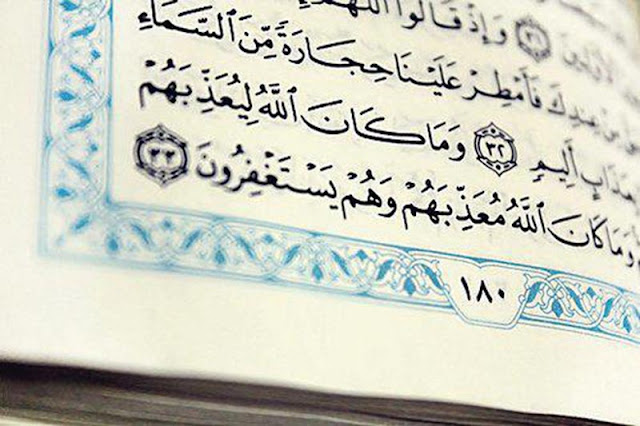 ٱلۡأَوَّلِينَ ٣١ وَإِذۡ قَالُوا۟ ٱللَّهُمَّ
مِنۡ عِندِكَ فَأَمۡطِرۡ عَلَيۡنَا حِجَارَةٗ مِّنَ ٱلسَّمَآءِ
عَذَابٍ أَلِيمٖ ٣٢ وَمَا كَانَ ٱللَّهُ لِيُعَذِّبَهُمۡ
وَمَا كَانَ ٱللَّهُ مُعَذِّبَهُمۡ وَهُمۡ يَسۡتَغۡفِرُونَ ٣٣
١٨٠